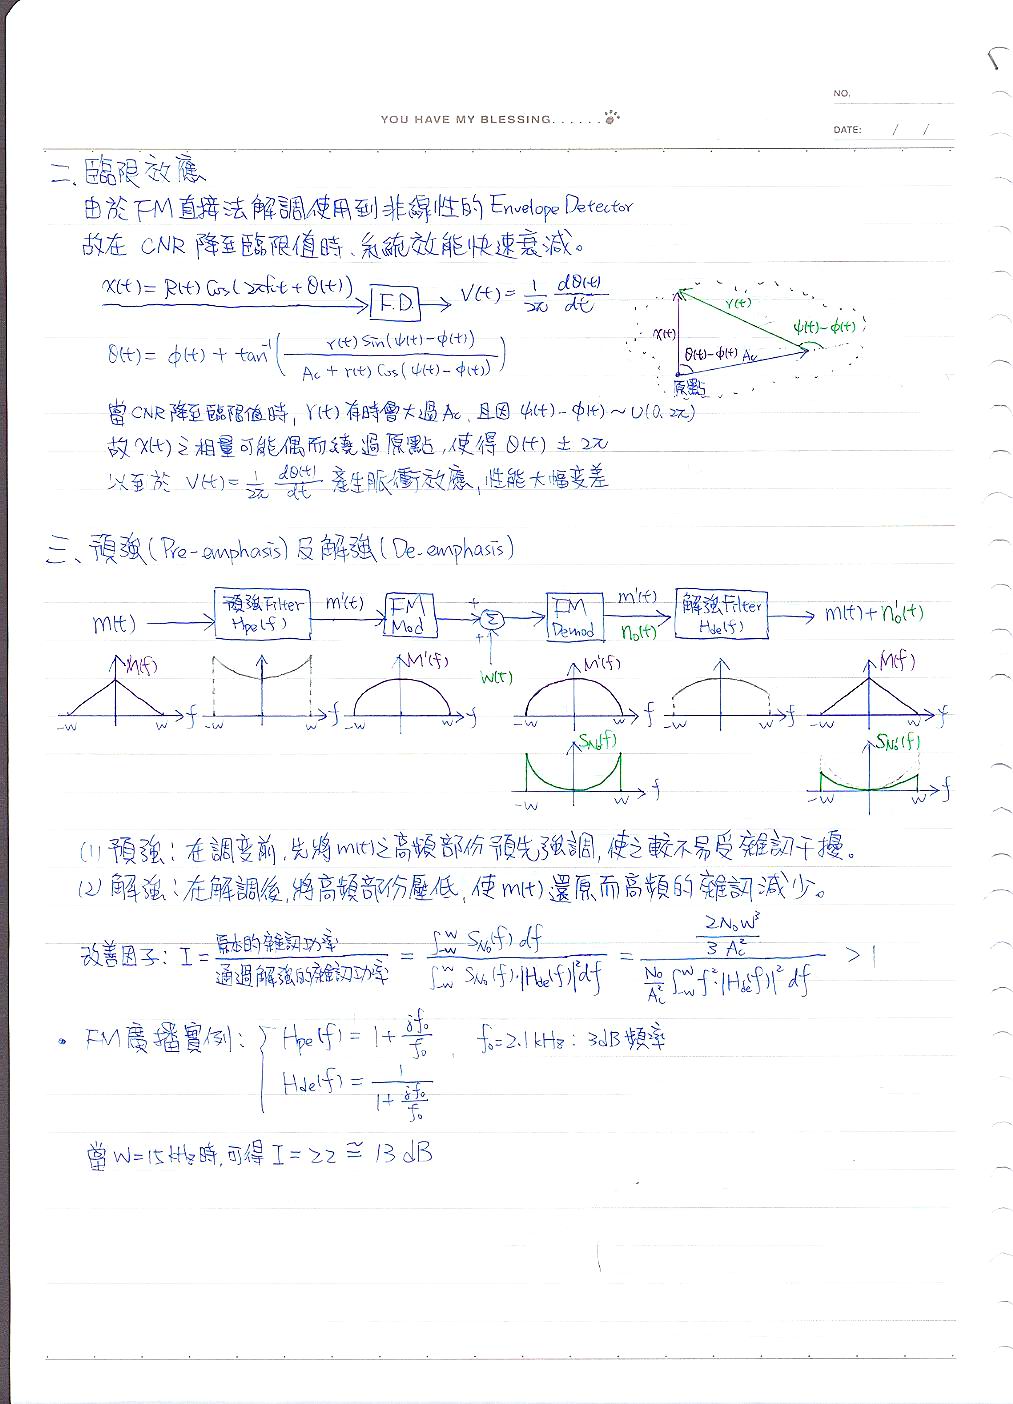 NO.
YOU HAVE MY BLESSING......
DATE: / /
二、臨限效應
由於 FM 直接法解調使用到非線性的 Envelope Detector
故在 CNR 降至臨限值時、系統效能快速衰減。
x(t) = R(t) Cos(2πfct + θ(t)) F.D. V(t) = 1/2π dθ(t)/dt
r(t) ψ(t)-φ(t)
x(t) θ(t)-φ(t) Ac
原點
θ(t) = φ(t) + tan⁻¹( r(t) Sin(ψ(t)-φ(t)) / Ac + r(t) Cos(ψ(t)-φ(t)) )
當 CNR 降至臨限值時, r(t) 有時會大過 Ac, 且因 ψ(t)-φ(t) ~ U(0, 2π)
故 x(t) 之相量可能偶而繞過原點, 使得 θ(t) ± 2π
以至於 V(t) = 1/2π dθ(t)/dt 產生脈衝效應, 性能大幅变差
三、預強(Pre-emphasis) 及解強(De-emphasis)
m(t) 預強Filter Hpe(f) m'(t) FM Mod + Σ + W(t) FM Demod m'(t) no(t) 解強Filter Hde(f) m(t) + no'(t)
M(f) M'(f) M'(f) M(f)
-W W f -W W f -W W f -W W f -W W f -W W f
SNo(f) SNo'(f)
-W W f -W W f
(1) 預強: 在調变前, 先將 m(t) 之高頻部份預先強調, 使之較不易受雜訊干擾。
(2) 解強: 在解調後, 將高頻部份壓低, 使 m(t) 還原而高頻的雜訊減少。
改善因子: I = 原本的雜訊功率 / 通過解強的雜訊功率 = ∫-W^W SNo(f) df / ∫-W^W SNo(f)·|Hde(f)|² df = 2NoW³/3Ac² / No/Ac² ∫-W^W f²·|Hde(f)|² df > 1
• FM 廣播實例: { Hpe(f) = 1 + jfo/fo , fo = 2.1 kHz: 3dB 頻率
Hde(f) = 1 / 1 + jfo/fo
當 W = 15 kHz 時, 可得 I = 22 ≅ 13 dB